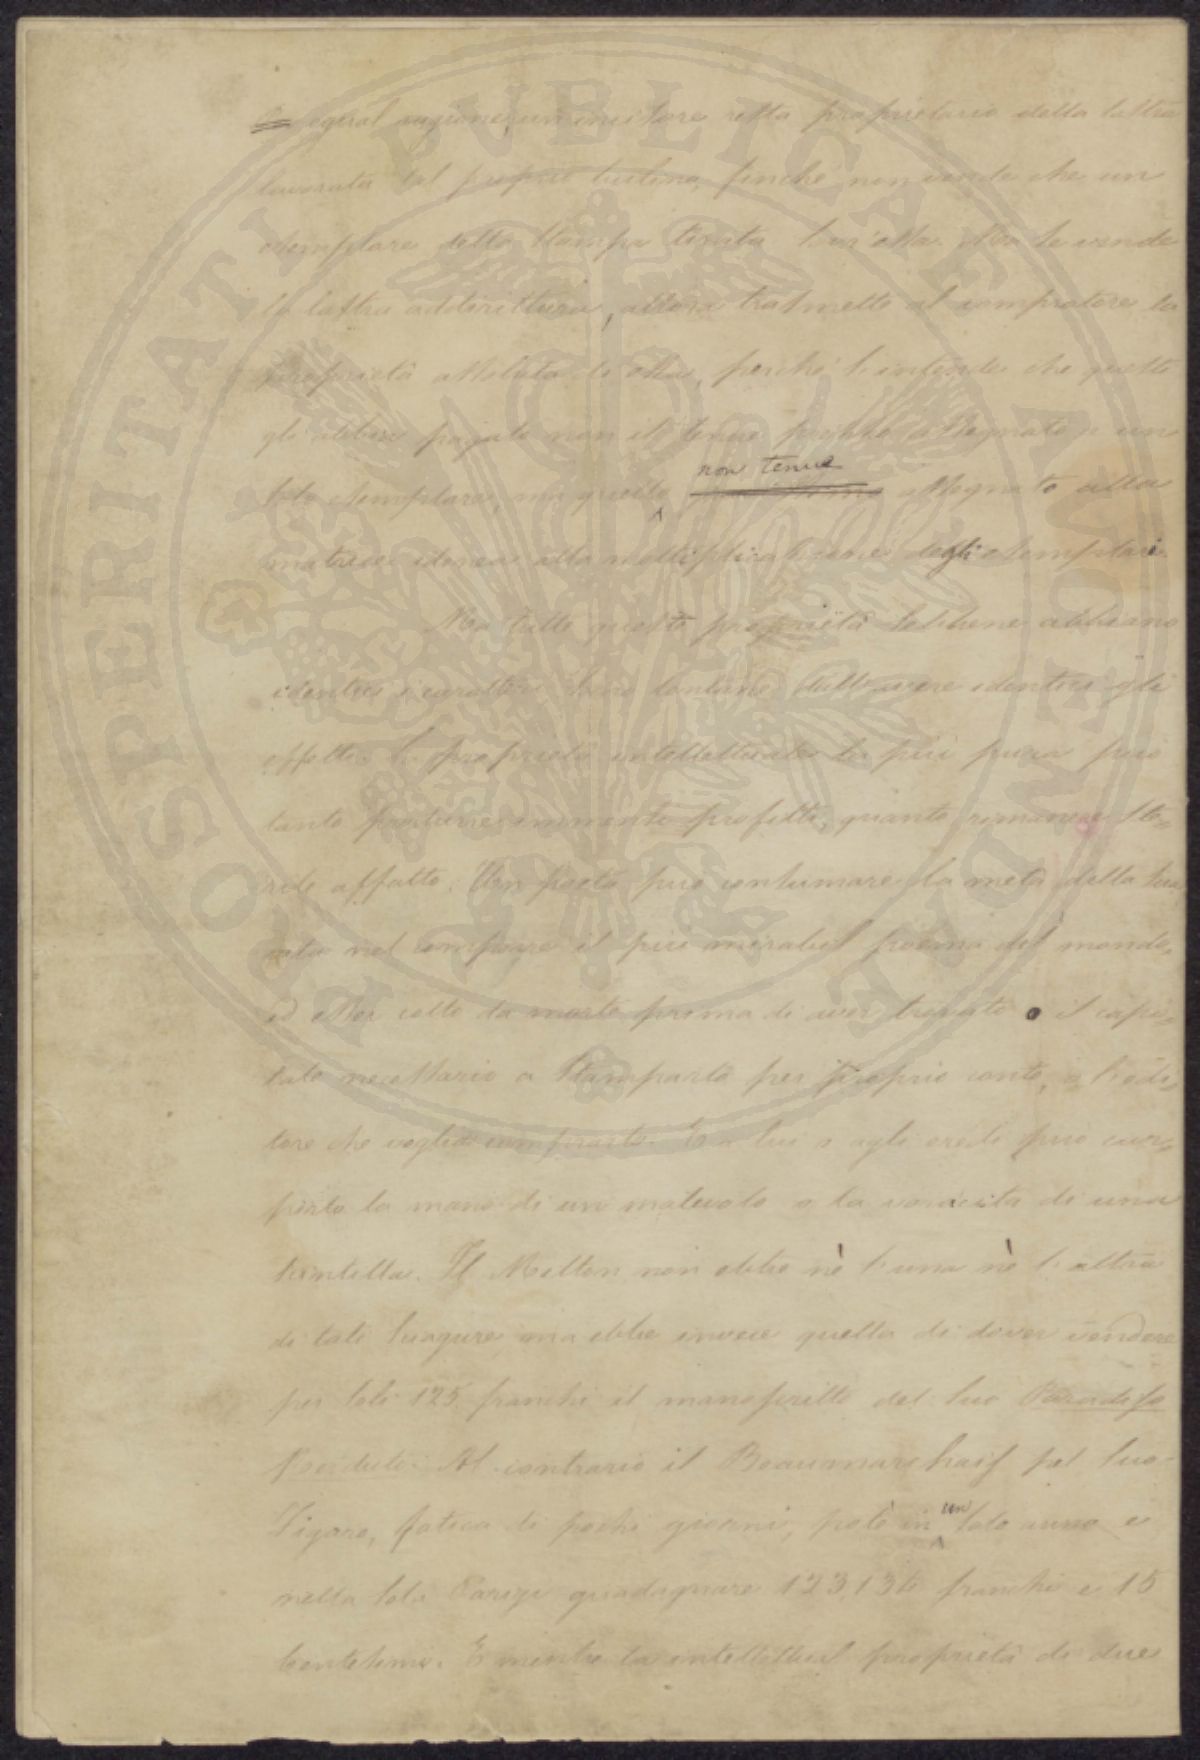 egual ragione un incisore resta proprietario della lastra
lavorata col proprio bulino, finchè non vende che un
esemplare della stampa tirata con essa. Ma se vende
la lastra addirittura, allora trasmette al compratore la
proprietà assoluta di essa, perchè s'intende che questi
gli abbia pagato non il tenue prezzo assegnato a un
solo esemplare, ma quello non tenue assegnato alla
matrice idonea alla moltiplicazione degli esemplari.
Ma tutte queste proprietà sebbene abbiano
identici i caratteri sono lontane dall'avere identici gli
effetti. La proprietà intellettuale la più pura può
tanto produrre immensi profitti, quanto rimanere ste-
rile affatto. Un poeta può consumare la metà della sua
vita nel comporre il più mirabil poema del mondo,
ed esser colto da morte prima di aver trovato o il capi-
tale necessario a stamparlo per proprio conto, o l'edi-
tore che voglia comprarlo. E a lui o agli eredi può
la mano di un malevolo o la voracità di una
scintilla. Il Milton non ebbe nè l'una nè l'altra
di tali sciagure, ma ebbe invece quella di dover vendere
per soli 125 franchi il manoscritto del suo Paradiso
Perduto. Al contrario il Beaumarchais pel suo
Figaro, fatica di pochi giorni, potè in un solo anno e
nella sola Parigi guadagnare franchi e 15
centesimi. E mentre la intellettual proprietà di due
PROSPERITATI PVBLICAE AVGENDAE